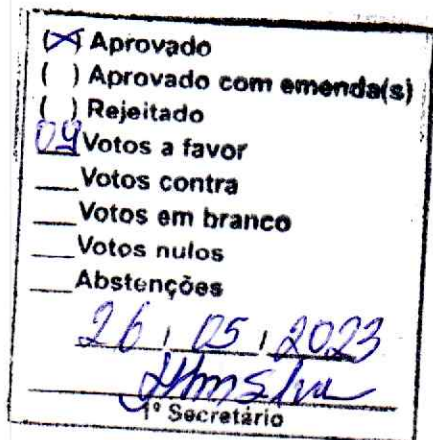 (X) Aprovado
( ) Aprovado com emenda(s)
( ) Rejeitado
09 Votos a favor
___Votos contra
___Votos em branco
___Votos nulos
___Abstenções
26 / 05 / 2023
1º Secretário